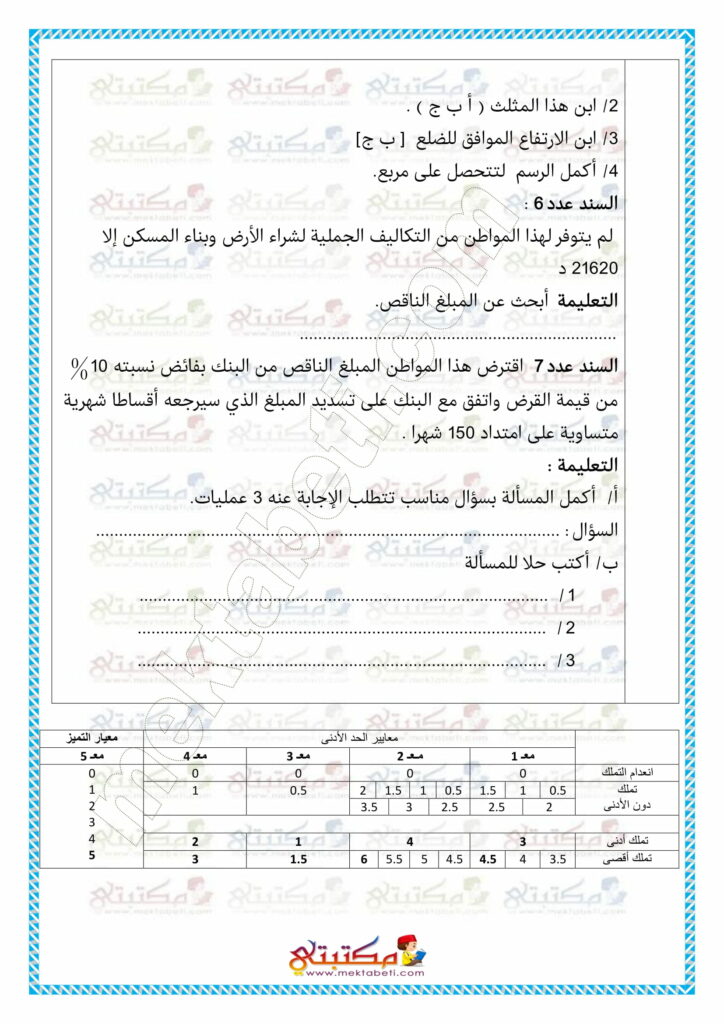 2/ ابن هذا المثلث ( أ ب ج ) .
3/ ابن الارتفاع الموافق للضلع [ ب ج]
4/ أكمل الرسم لتتحصل على مربع.
السند عدد 6 :
لم يتوفر لهذا المواطن من التكاليف الجملية لشراء الأرض وبناء المسكن إلا
21620 د
التعليمة أبحث عن المبلغ الناقص.
..........................................................
السند عدد 7 اقترض هذا المواطن المبلغ الناقص من البنك بفائض نسبته 10%
من قيمة القرض واتفق مع البنك على تسديد المبلغ الذي سيرجعه أقساطا شهرية
متساوية على امتداد 150 شهرا .
التعليمة :
أ/ أكمل المسألة بسؤال مناسب تتطلب الإجابة عنه 3 عمليات.
السؤال : ......................................................................................
ب/ أكتب حلا للمسألة
1 / ...........................................................................
2 / ...........................................................................
3 / ...........................................................................
معايير الحد الأدنى معيار التميز
معـ 1 معـ 2 معـ 3 معـ 4 معـ 5
انعدام التملك 0 0 0 0 0
تملك 0.5 1 1.5 0.5 1 1.5 2 0.5 1 1
دون الأدنى 2 2.5 2.5 3 3.5 2
3
تملك أدنى 3 4 1 2 4
تملك أقصى 3.5 4 4.5 4.5 5 5.5 6 1.5 3 5
مكتبتي
www.mektabeti.com
mektabeti.com